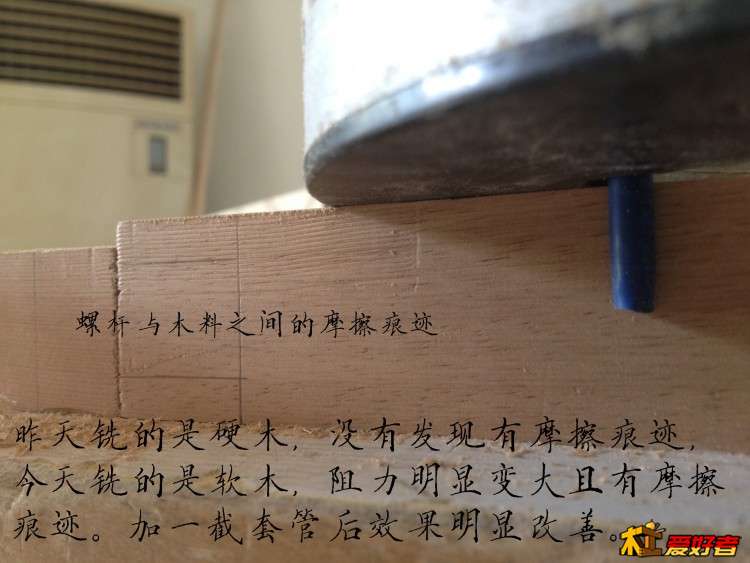 螺杆与木料之间的摩擦痕迹
昨天铣的是硬木，没有发现有摩擦痕迹，
今天铣的是软木，阻力明显变大且有摩擦
痕迹。加一截套管后效果明显改善。
爱好者